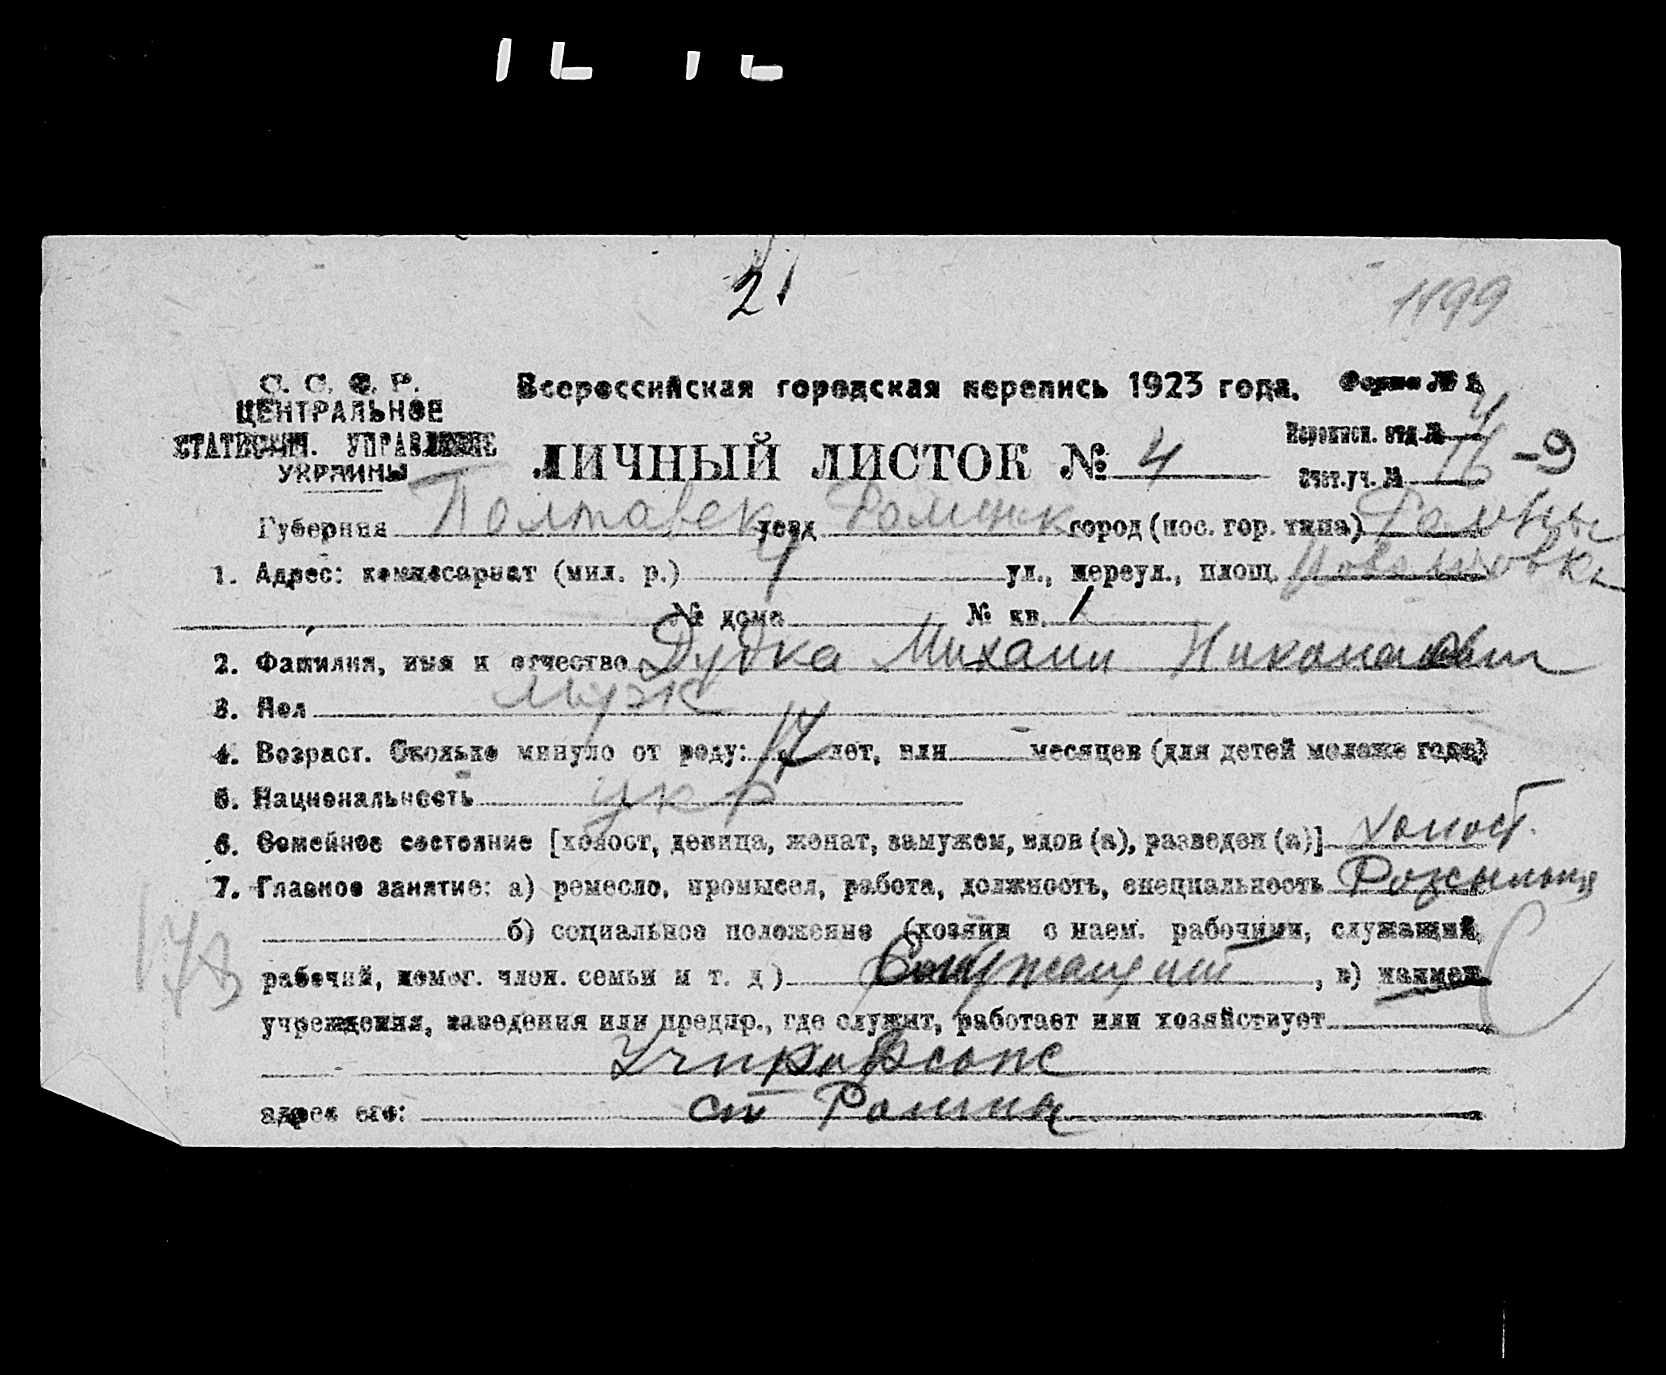 21
1199
С. С. С. Р.
ЦЕНТРАЛЬНОЕ
СТАТИСТИЧ. УПРАВЛЕНИЕ
УКРАИНЫ
Всероссийская городская перепись 1923 года.
Форма № 1.
ЛИЧНЫЙ ЛИСТОК № 4
Переписн. отд. № 4
Счет. уч. № 16 - 9
Губерния Полтавск уезд Роменск город (пос. гор. типа) Ромны
1. Адрес: комиссариат (мил. р.) 4 ул., переул., площ.
№ дома № кв. 1
2. Фамилия, имя и отчество Дудка Михаил Николаевич
3. Пол муж
4. Возраст. Сколько минуло от роду: 17 лет, или месяцев (для детей моложе года)
5. Национальность укр
6. Семейное состояние [холост, девица, женат, замужем, вдов (а), разведен (а)] холост.
7. Главное занятие: а) ремесло, промысел, работа, должность, специальность
б) социальное положение (хозяин с наем. рабочими, служащий,
рабочий, помог. член. семьи и т. д) Служащий, в) наимен.
учреждения, заведения или предпр., где служит, работает или хозяйствует
Учпрофсож
адрес его: ст Ромны